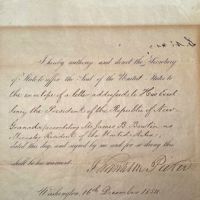 I hereby authorize and direct the Secretary
of State to affix the Seal of the United States to
the envelope of a letter addressed to His Excel
lency the President of the Republic of New
Granada presenting Mr. James B. Bowlin as
Minister Resident of the United States,
dated this day, and signed by me and for so doing this
shall be his warrant.
Franklin Pierce
Washington, 16th December 1854.